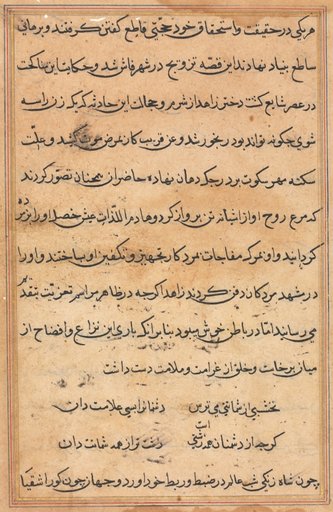 هر یکی در حقیقت و استحقاق خود حجتی قاطع گفتن گرفتند و برهانی
ساطع بنیاد نهادند این قصه تزویج در شهر فاش شد و حکایت این مناکحت
در عصر شایع گشت دختر زاهد از شرم و خجالت این حادثه که یک زن را سه
شوی چگونه تواند بود رنجور شد و عن قریب کار بمرض موت کشید و علت
سکته مهر سکوت بر درجک دهان نهاده حاضران همچنان تصور کردند
که مرغ روح او از آشیانه تن پرواز کرد و هادم اللذات عیش خصد او را
کردانید و او بمرک مفاجات بمرد کار تجهیز و تکفین او بساختند و او را
در مشهد مردکان دفن کردند زاهد اکرچه در ظاهر مراسم تعزیت بتقدیم
می رسانید اما در باطن خوش میبود بنابر آنکه باری این نزاع و افضاح از
میان برخاست و خلق از غرامت و ملامت دست داشت
نخشبی از شماتتی می ترس دشمنا را سی علامت دان
کرچه از دشمنان همه زشتی است زشت تر از همه شماتت دان
چون شاه زنکی شب عالم در ضبط و ربط خود آورد و جهان چون کور اشقیا